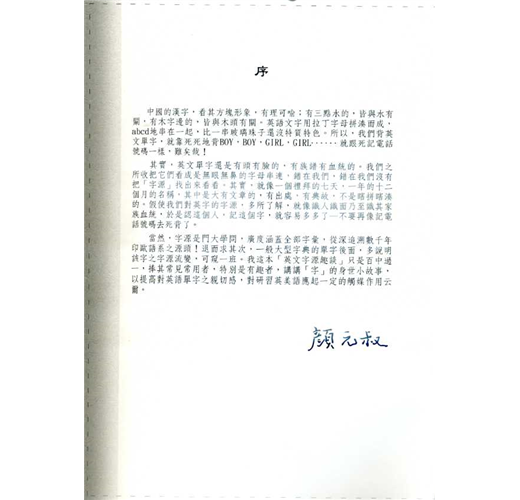 序
中國的漢字，看其方塊形象，有理可喻；有三點水的，皆與水有
關，有木字邊的，皆與木頭有關。英語文字用拉丁字母拼湊而成，
abcd地串在一起，比一串玻璃珠子還沒特質特色。所以，我們背英
文單字，就靠死死地背BOY，BOY，GIRL，GIRL……就跟死記電話
號碼一樣，難矣哉！
其實，英文單字還是有頭有臉的，有族錯有血統的。我們之
所收把它們看成是無眼無鼻的字母串連，錯在我們，錯在我們沒有
把「字源」找出來看看。其實，就像一個禮拜的七天，一年的十二
個月的名稱，其中是大有文章的，有出處，有典故，不是瞎拼瞎湊
的。假使我們對英字的字源，多所了解，就像識人識面乃至識其家
族血統，於是認這個人，記這個字，就容易多多了—不要再像記電
話號碼去死背了。
當然，字源是門大學問，廣度涵蓋全部字彙，從深追溯數千年
印歐語系之源頭！退而求其次，一般大型字典的單字後面，多說明
該字之字源流變，可窺一斑。我這本「英文字源趣談」只是百中過
一，捧其常見常用者，特別是有趣者，講講「字」的身世小故事，
以提高對英語單字之親切感，對研習英美語應起一定的觸媒作用云
爾。
顏元叔